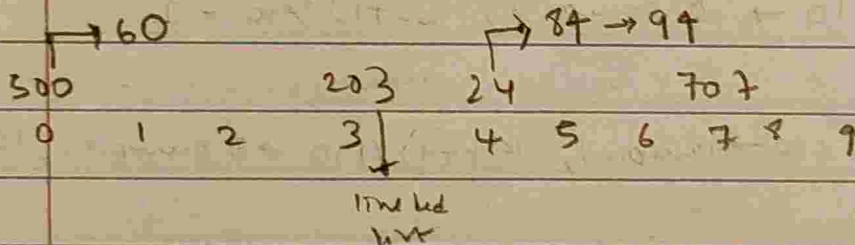 → 60 → 84 → 94
500 203 24 707
0 1 2 3 4 5 6 7 8 9
linked
list